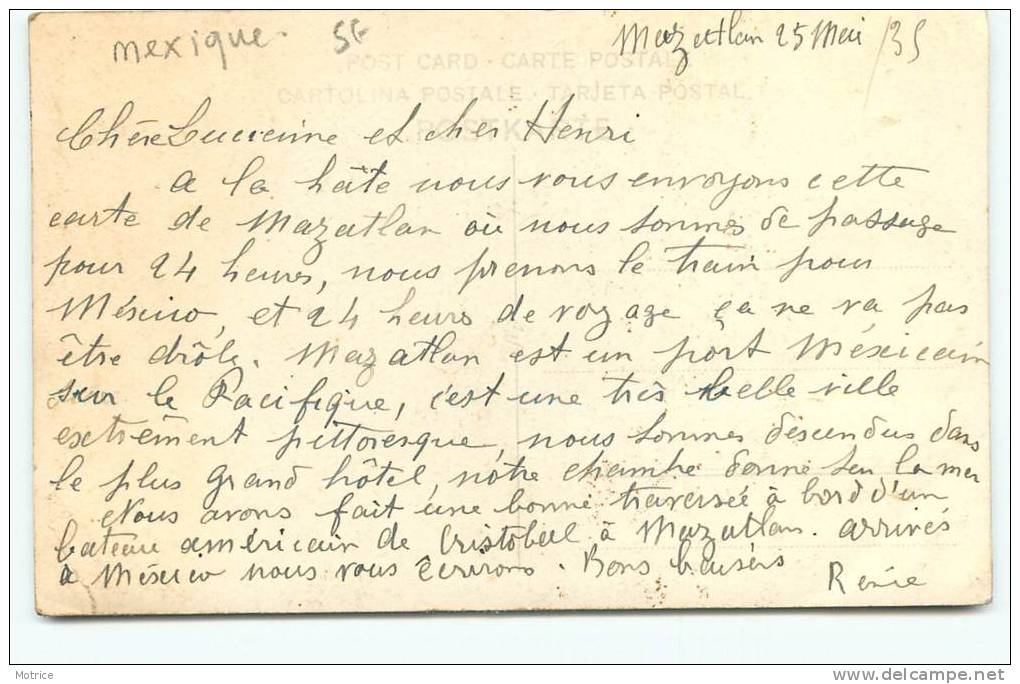 mexique. 5F
Mazatlan 25 Mai /35
POST CARD · CARTE POSTALE
CARTOLINA POSTALE · TARJETA POSTAL
POSTKARTE
Chère Lucienne et cher Henri
a la hâte nous vous envoyons cette
carte de Mazatlan où nous sommes de passage
pour 24 heures, nous prenons le train pour
México, et 24 heures de voyage ça ne va pas
être drôle. Mazatlan est un port Méxicain
sur le Pacifique, c'est une très belle ville
extrêment pittoresque, nous sommes déscendus dans
le plus grand hôtel, nôtre chambre donne sur la mer
Nous avons fait une bonne traversée à bord d'un
bateau américain de Cristobal à Mazatlan. arrivés
à México nous vous écrirons. Bons baisérs
Renée
Motrice
www.delcampe.net